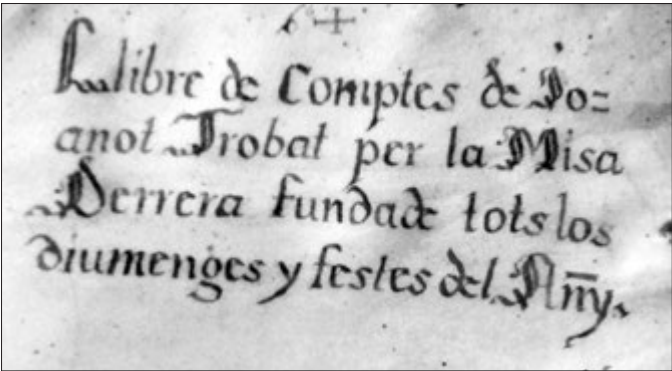 Llibre de Comptes de Jo=
anot Trobat per la Misa
Derrera fundade tots los
diumenges y festes del Añy.